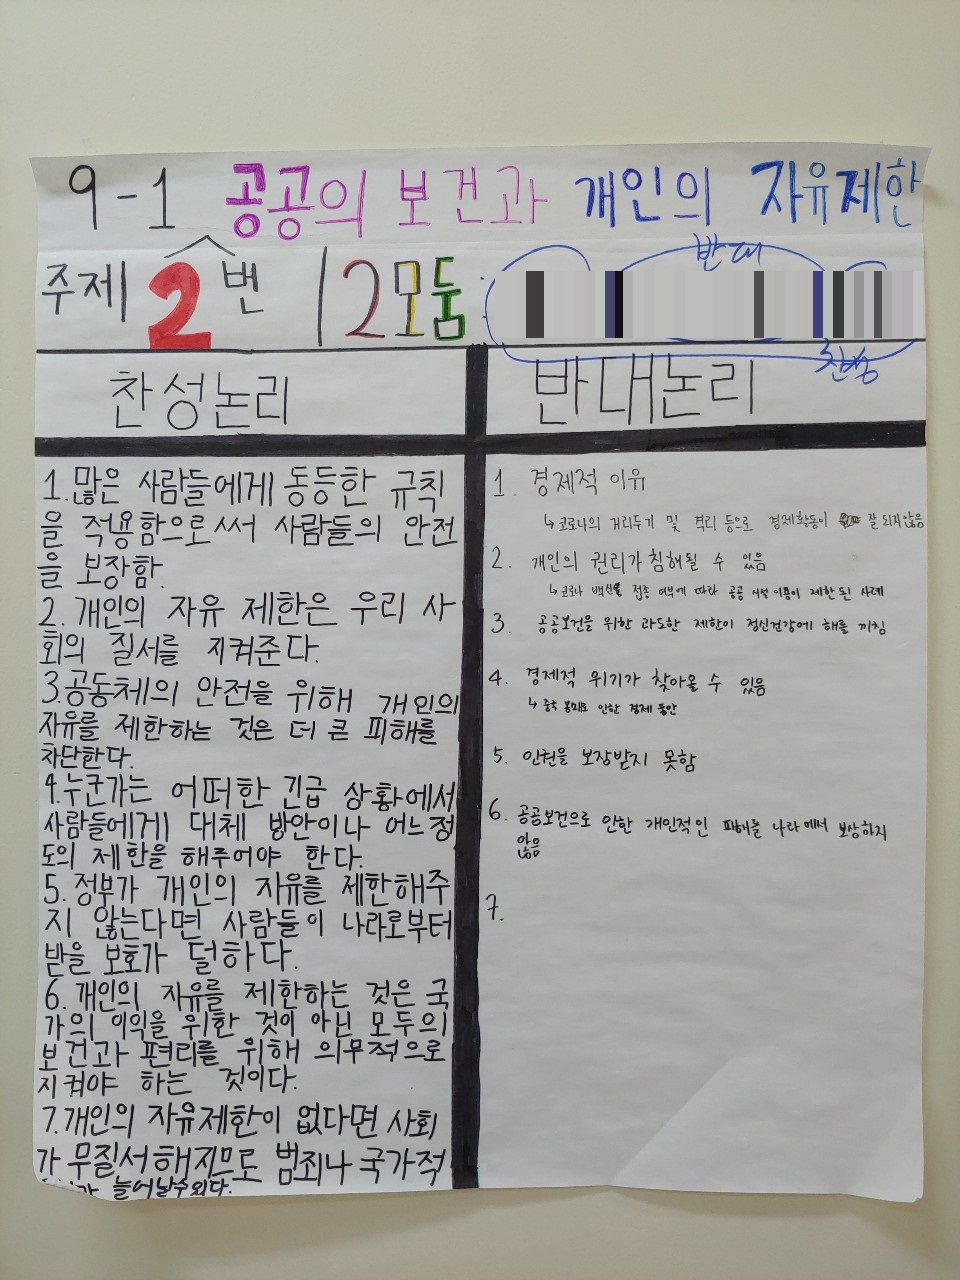 9-1 공공의 보건과 개인의 자유제한
주제 2번 / 2모둠:
반대
찬성
찬성논리
반대논리
1.많은 사람들에게 동등한 규칙
을 적용함으로써 사람들의 안전
을 보장함.
2.개인의 자유 제한은 우리 사
회의 질서를 지켜준다.
3.공동체의 안전을 위해 개인의
자유를 제한하는 것은 더 큰 피해를
차단한다.
4.누군가는 어떠한 긴급 상황에서
사람들에게 대체 방안이나 어느정
도의 제한을 해주어야 한다.
5.정부가 개인의 자유를 제한해주
지 않는다면 사람들이 나라로부터
받을 보호가 덜하다.
6.개인의 자유를 제한하는 것은 국
가의 이익을 위한 것이 아닌 모두의
보건과 편리를 위해 의무적으로
지켜야 하는 것이다.
7.개인의 자유제한이 없다면 사회
가 무질서해지므로 범죄나 국가적
늘어날수있다.
1. 경제적 이유
↳ 코로나의 거리두기 및 격리 등으로 경제활동이 잘 되지않음
2. 개인의 권리가 침해될 수 있음
↳ 코로나 백신 접종 여부에 따라 공공 시설 이용이 제한된 사례
3. 공공보건을 위한 과도한 제한이 정신건강에 해를 끼침
4. 경제적 위기가 찾아올 수 있음
↳ 중국 봉쇄로 인한 경제 불안
5. 인권을 보장받지 못함
6. 공공보건으로 인한 개인적인 피해를 나라에서 보상하지
않음
7.